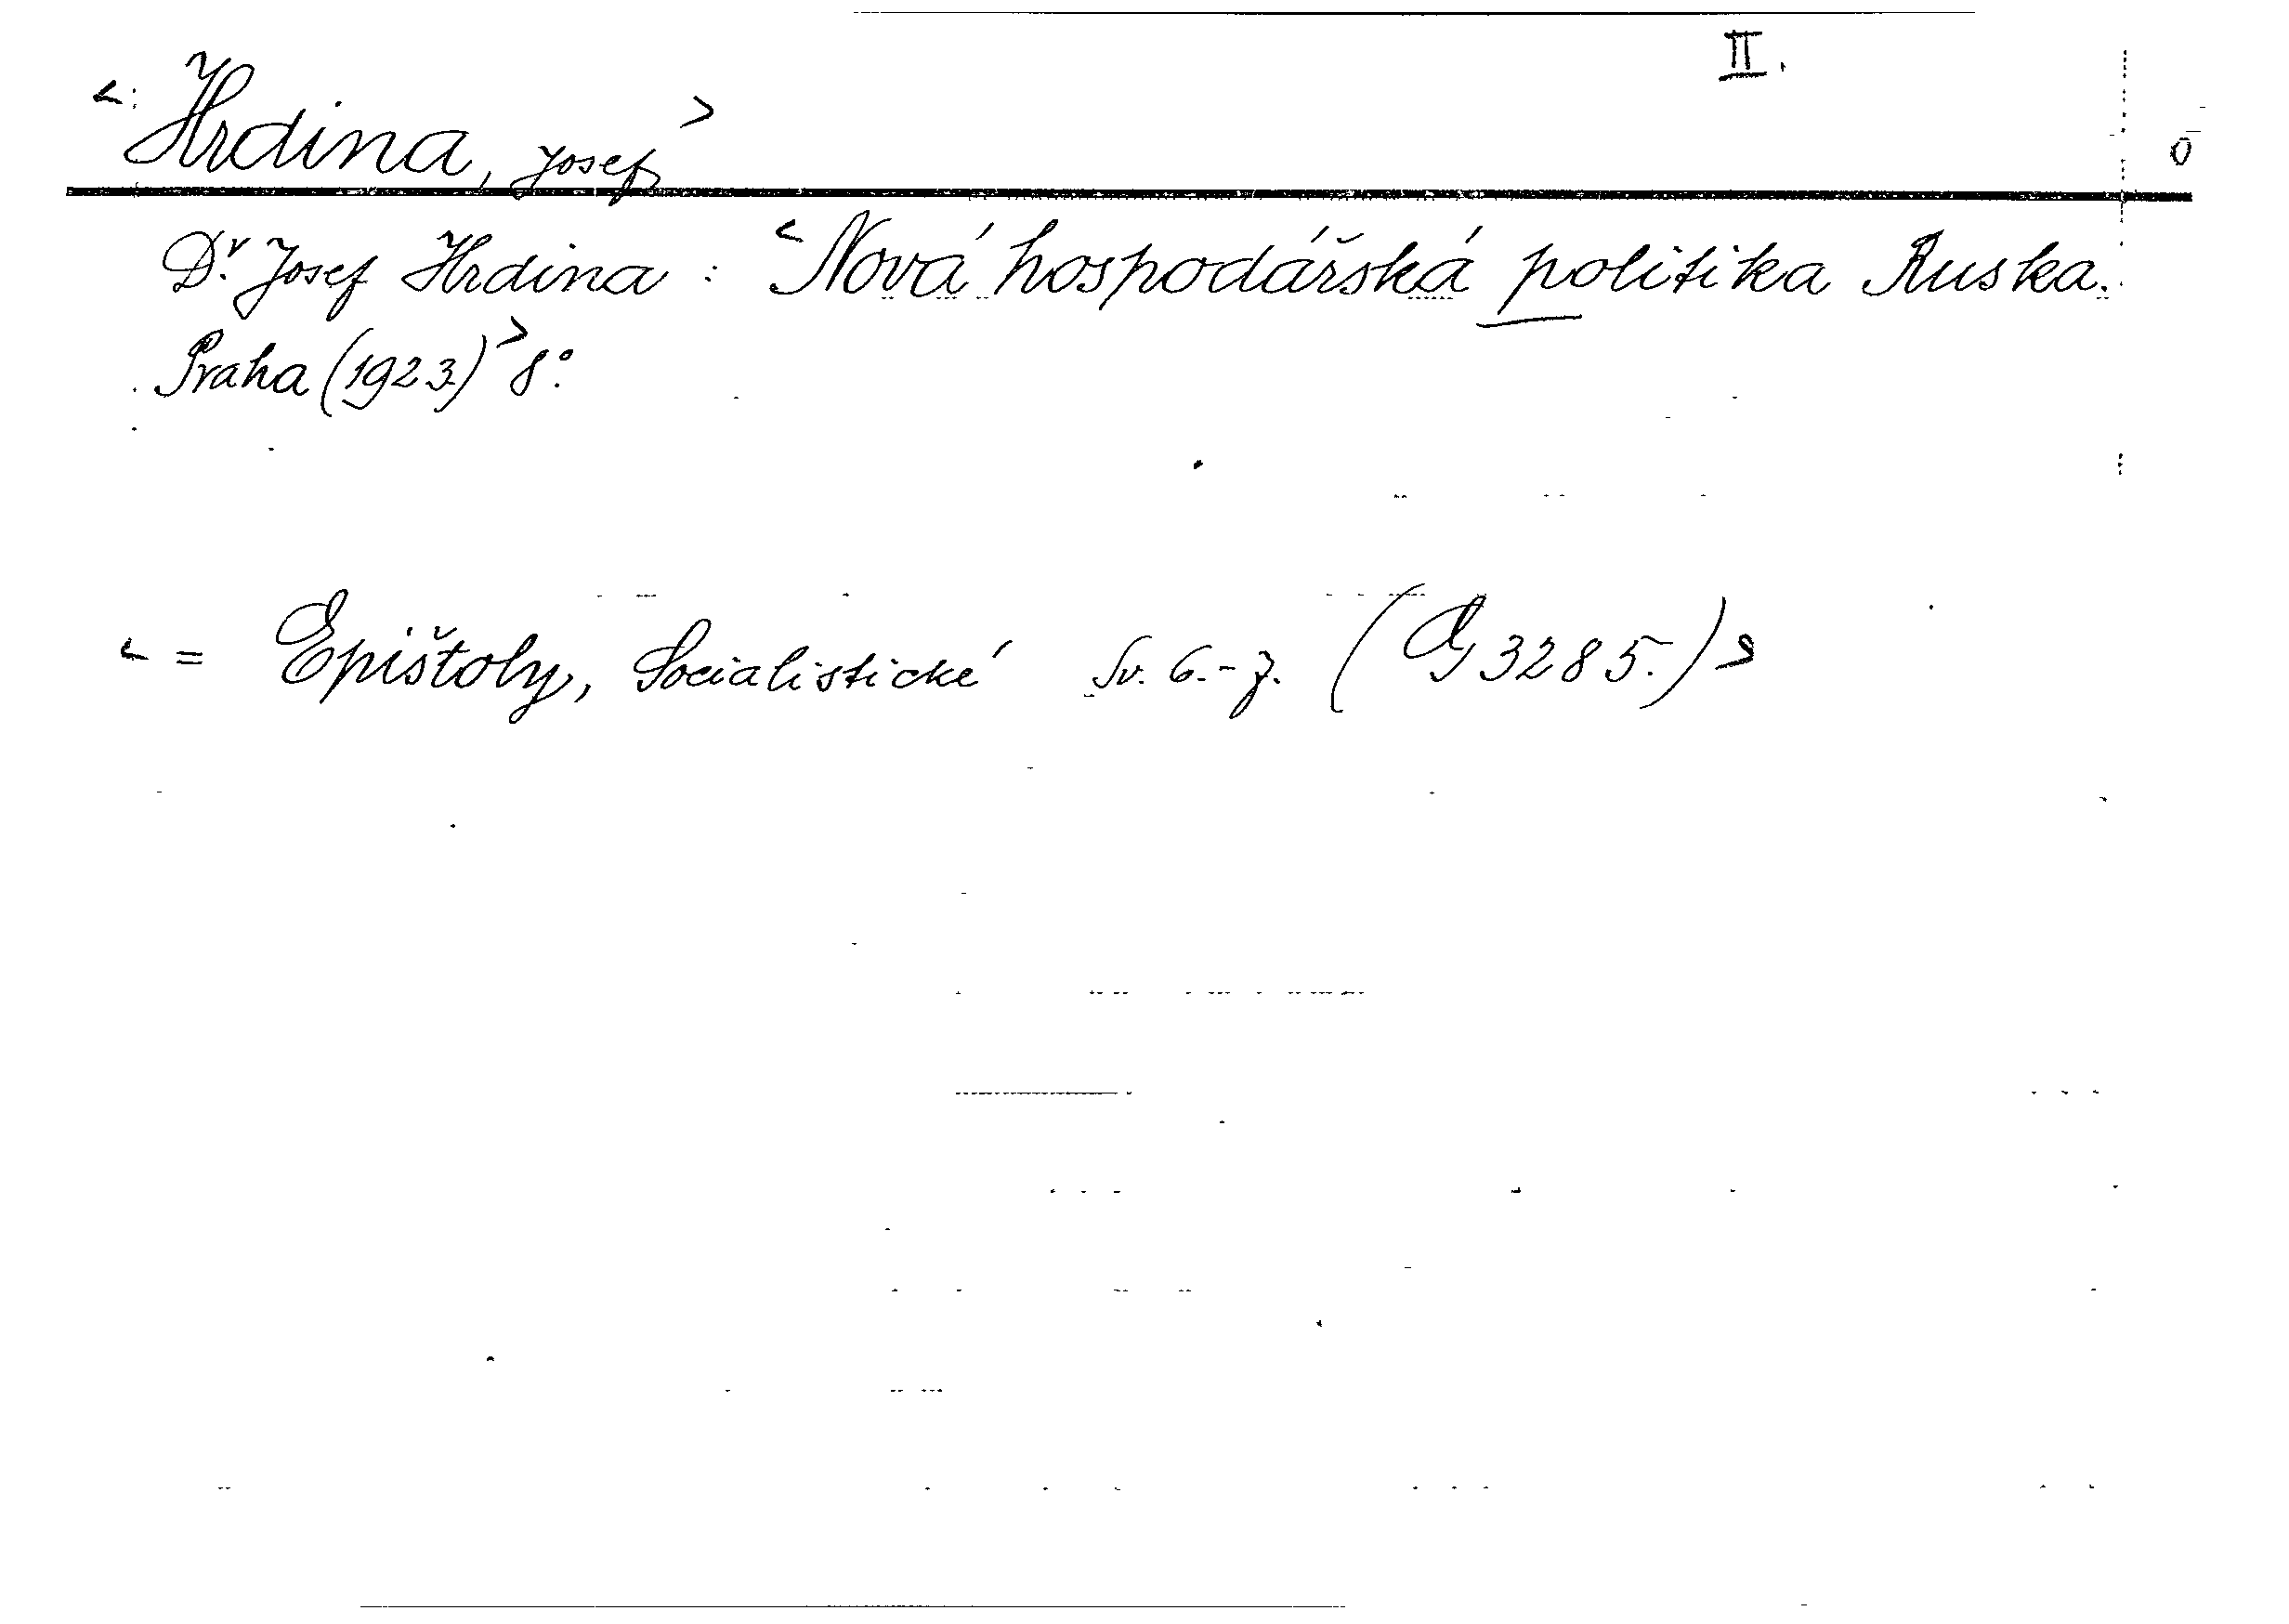 II.
<Hrdina, Josef>
Dr. Josef Hrdina : <Nová hospodářská politika Ruska.
Praha (1923)> 8°.
<= Epištoly, Socialistické Sv. 6.-7. (G 3285.)>